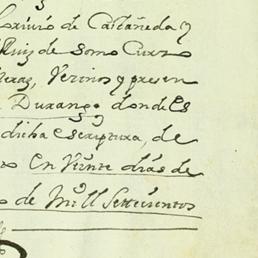 de Castañeda y
Ruiz de Somo Curzio
Vezinos y presen
Durango donde les
dicha escriptura, de
En Veinte dias de
de Mill Settecientos